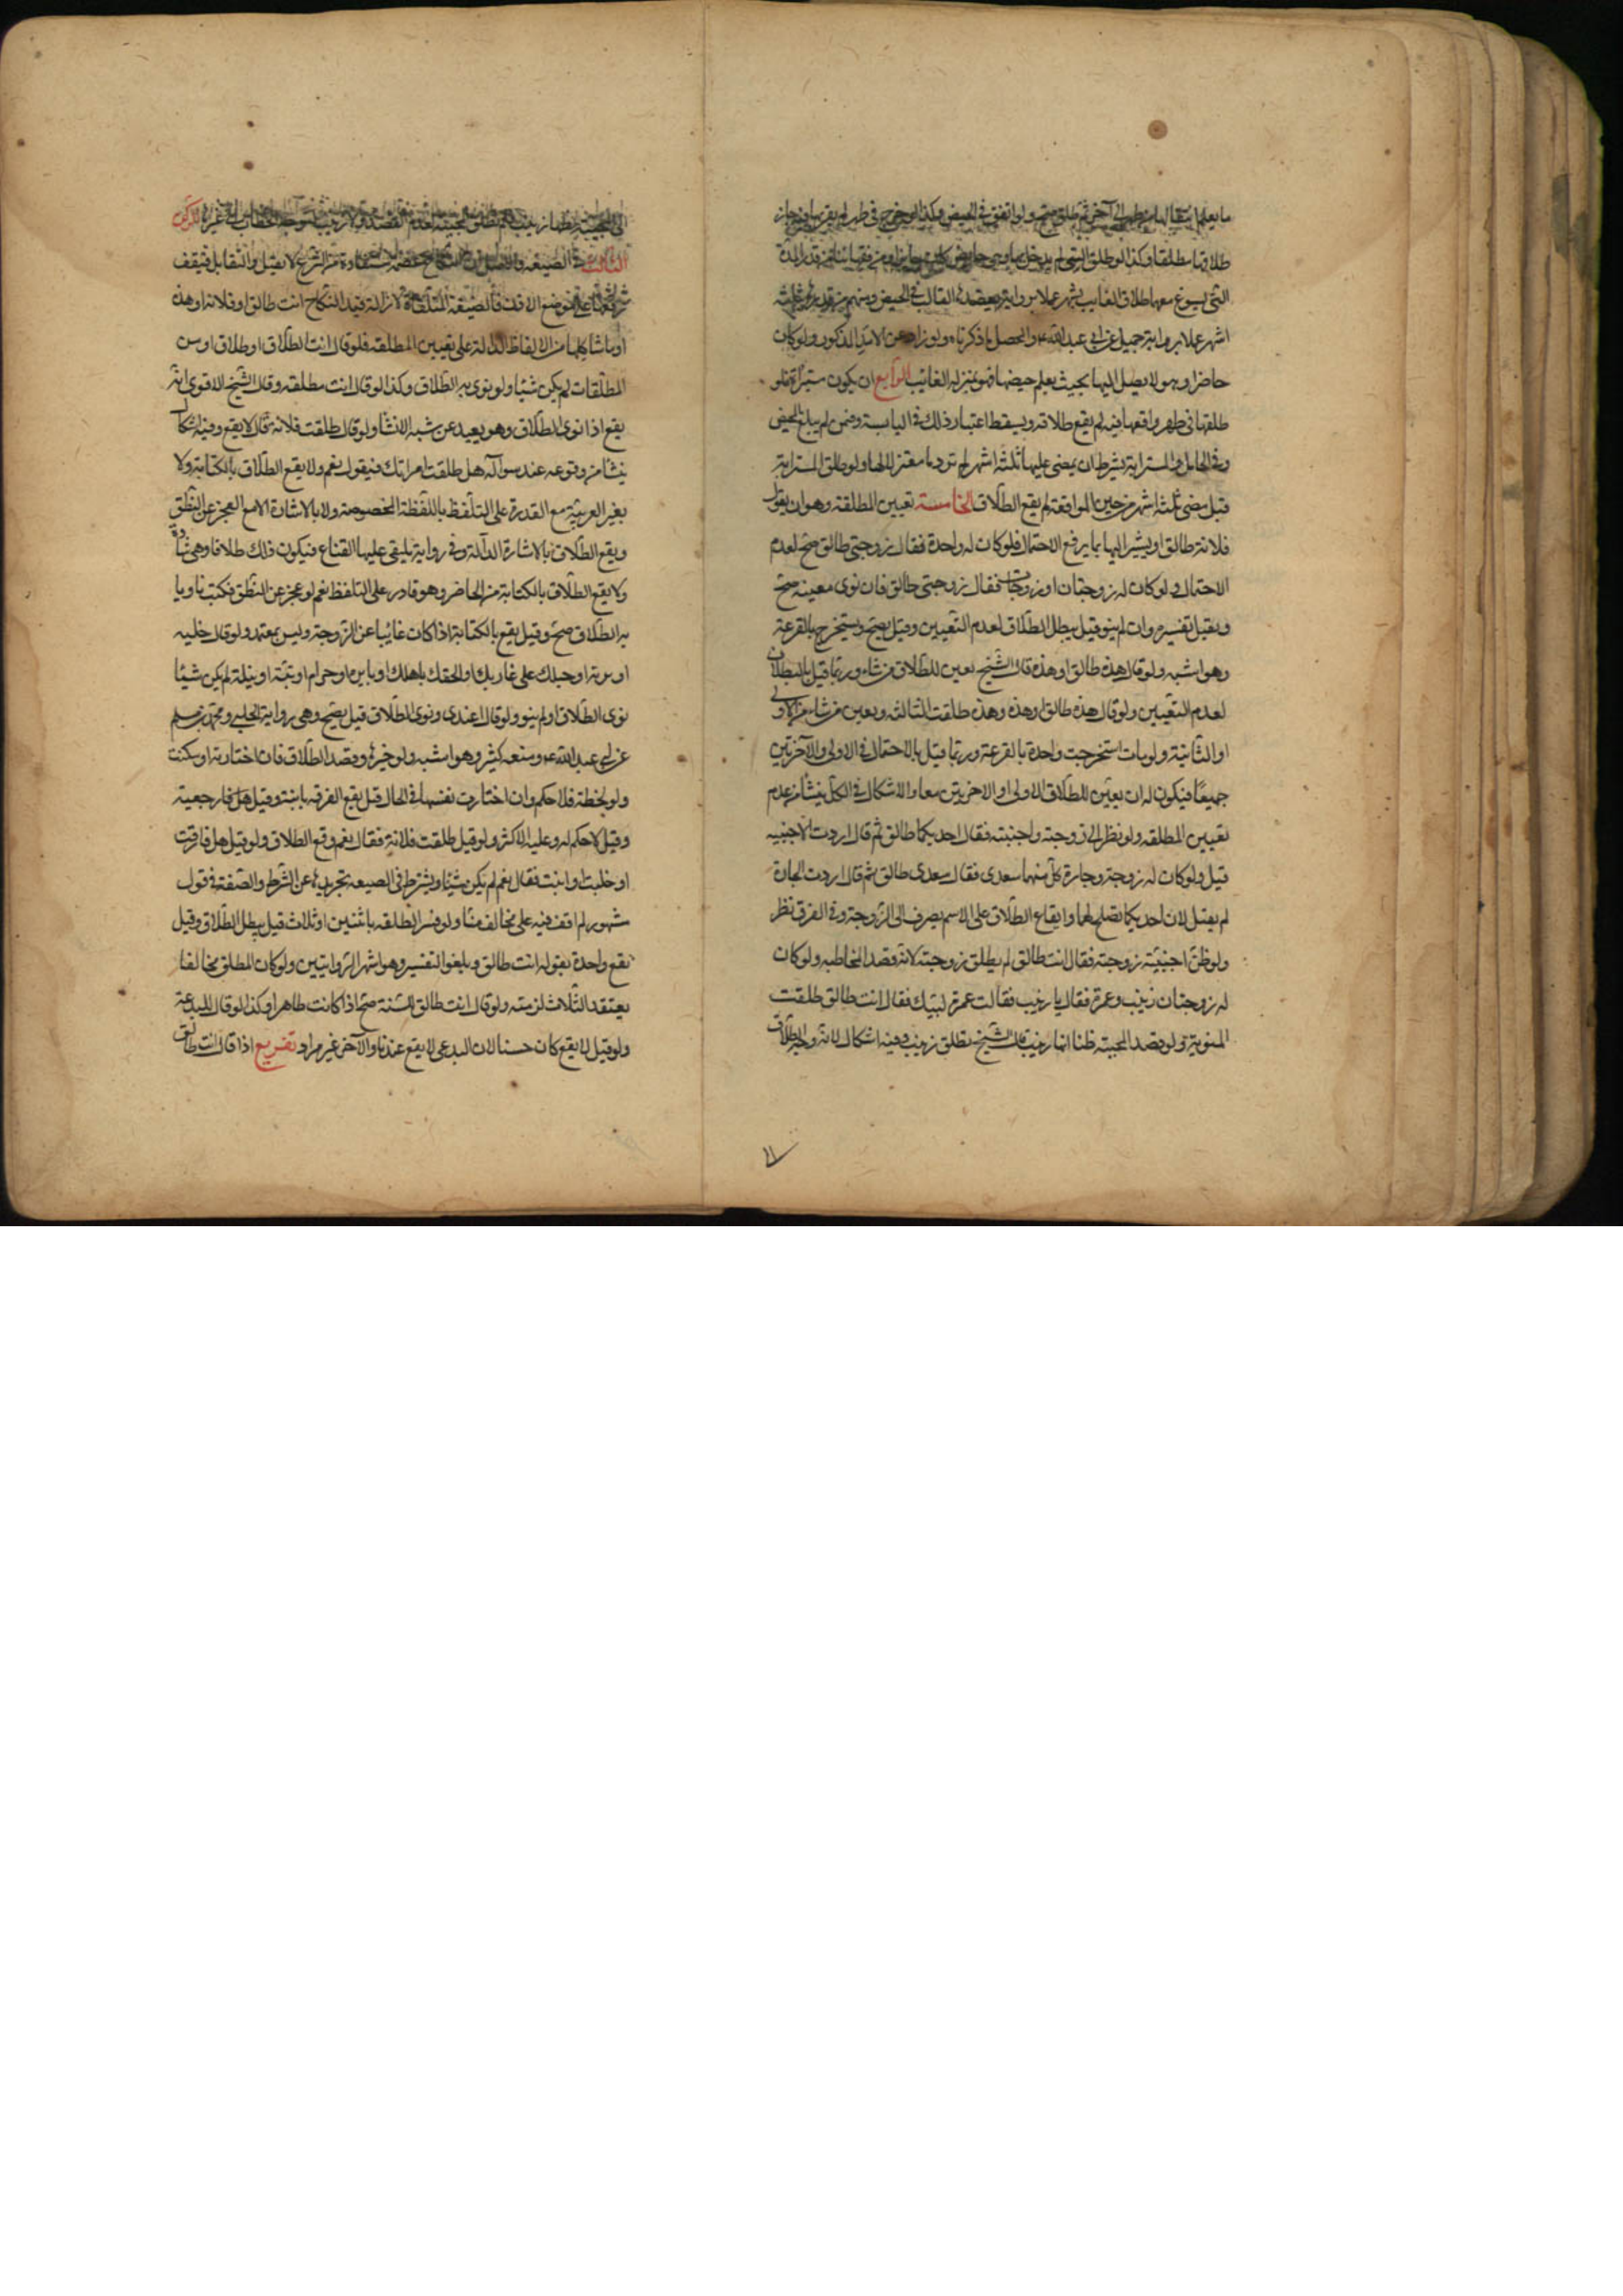 ما يعلم انتقالها من طهر الى آخر ثم طلق صح ولو اتفق في الحيض وكذا لو خرج في طهر لم يقربها فيه جاز
طلاقها مطلقا وكذا لو طلق التي لم يدخل بها وهي حايض كان جايزا ومن فقهائنا من قدر المدة
التي يسوغ معها طلاق الغايب بشهر عملا برواية يعضدها الغالب في الحيض ومنهم من قدرها بثلثة
اشهر عملا برواية جميل عن ابي عبد الله ع والمحصل ما ذكرناه ولو زاد عن الامد المذكور ولو كان
حاضرا وهو لا يصل اليها بحيث يعلم حيضها فهو بمنزلة الغائب الرابع ان يكون مستبرأة فلو
طلقها في طهر واقعها فيه لم يقع طلاقه ويسقط اعتبار ذلك في اليايسة وفمن لم يبلغ الحيض
وفي الحامل و المسترابة بشرط ان يمضي عليها ثلثة اشهر لم تر دما معتزلا لها ولو طلق المسترابة
قبل مضي ثلثة اشهر من حين المواقعة لم يقع الطلاق الخامسة تعيين المطلقة وهو ان يقول
فلانة طالق او يشير اليها بما يرفع الاحتمال فلو كان له واحدة فقال زوجتي طالق صح لعدم
الاحتمال ولو كان له زوجتان او زوجات فقال زوجتي طالق فان نوى معينة صح
ويقبل تفسيره وان لم ينو قيل يبطل الطلاق لعدم التعيين وقيل يصح ويستخرج بالقرعة
وهو اشبه ولو قال هذه طالق او هذه قال الشيخ يعين للطلاق من شاء وربما قيل بالبطلان
لعدم التعيين ولو قال هذه طالق وهذه وهذه طلقت الثالثة ويعين من شاء من الاولى
او الثانية ولو مات استخرجت واحدة بالقرعة وربما قيل بالاحتمال في الاولى والآخرتين
جميعا فيكون له ان يعين للطلاق الاولى او الاخريتين معا والاشكال في الكل ينشأ من عدم
تعيين المطلقه ولو نظر الى زوجته واجنبيه فقال احديكما طالق ثم قال اردت الاجنبيه
قبل ولو كان له زوجة وجارة كل منهما سعدى فقال سعدى طالق ثم قال اردت الجارة
لم يقبل لان احديكما تصلح لهما وايقاع الطلاق على الاسم يصرف الى الزوجة وفي الفرق نظر
ولو ظن اجنبية زوجته فقال انت طالق لم يطلق زوجته لانه قصد المخاطبه ولو كان
له زوجتان زينب وعمرة فقال يا زينب فقالت عمرة لبيك فقال انت طالق طلقت
المنوية ولو قصد المجيبه ظنا انها زينب قال الشيخ تطلق زينب وفيه اشكال لانه وجه الطلاق
الى المجيبة لظنها زينب فلم تطلق المجيبة لعدم القصد ولا زينب لتوجه الخطاب الى غيرها الركن
الثالث في الصيغه والاصل ان النكاح عصمة مستفادة من الشرع لا تقبل التقابل فيقف
رفعها على موضع الاذن فالصيغة المتلقاة لازالة قيد النكاح انت طالق او فلانة او هذه
او ما شاكلها من الالفاظ الدالة على تعيين المطلقة فلو قال انت الطلاق او طلاق او من
المطلقات لم يكن شيئا ولو نوى به الطلاق وكذا لو قال انت مطلقه وقال الشيخ الاقوى انه
يقع اذا نوى الطلاق وهو بعيد عن شبه الانشا ولو قال طلقت فلانة قال لا يقع وفيه اشكال
ينشا من وقوعه عند سواله هل طلقت امراتك فيقول نعم ولا يقع الطلاق بالكناية ولا
بغير العربية مع القدرة على التلفظ باللفظة المخصوصة ولا بالاشارة الا مع العجز عن النطق
ويقع الطلاق بالاشارة الدالة وفي رواية يلقى عليها القناع فيكون ذلك طلاقا وهي شاذة
ولا يقع الطلاق بالكتابة من الحاضر وهو قادر على التلفظ نعم لو عجز عن النطق فكتب ناويا
به الطلاق صح وقيل يقع بالكتابة اذا كان غائبا عن الزوجة وليس بمعتمد ولو قال خلية
او برية او حبلك على غاربك او الحقك باهلك او باين او حرام او بتة او بتلة لم يكن شيئا
نوى الطلاق او لم ينو ولو قال اعتدي ونوى الطلاق قيل يصح وهي رواية الحلبي ومحمد بن مسلم
عن ابي عبد الله ع ومنعه كثير وهو اشبه ولو خيرها وقصد الطلاق فان اختارته او سكتت
ولو لحظة فلا حكم وان اختارت نفسها في الحال قيل يقع الفرقة باينة وقيل بل رجعية
وقيل لا حكم له وعليه الاكثر ولو قيل طلقت فلانة فقال نعم وقع الطلاق ولو قيل هل فارقت
او خليت او ابنت فقال نعم لم يكن شيئا ويشترط في الصيغه تجريدها عن الشرط والصفة في قول
مشهور لم اقف فيه على مخالف منا ولو فسر الطلقه باثنتين او ثلاث قيل يبطل الطلاق وقيل
تقع واحدة بقوله انت طالق ويلغوا التفسير وهو اشهر الروايتين ولو كان المطلق مخالفا
يعتقد الثلاث لزمته ولو قال انت طالق للسنة صح اذا كانت طاهرا وكذا لو قال للبدعة
ولو قيل لا يقع كان حسنا لان البدعي لا يقع عندنا والآخر غير مراد تفريع اذا قال انت طالق